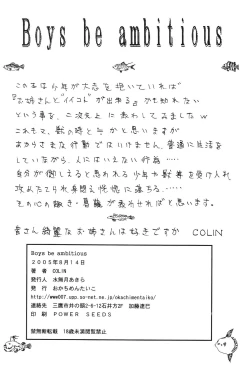 Boys be ambitious
この本は少年が大志を抱いていれば
『お姉さんとイイコト』が出来る かも知れない
という事を、二次元上に表わしてみましたw
これもマ、獣の時と
あからさまな行動ではいけません。普通に生活を
していながら、人にはいえない行為・・・・
自分が倒しえると思われる少年や野菜を受け入れ
攻めたてられ身悶え恍惚に落ちる・・・・・
その心の動き・葛藤が表わせればと思います。
皆さん綺麗なお姉さんは好きですか COLIN
Boys be ambitious
2005年8月14日
著者 COLIN
発行人 水無月あきら
発行 おかちめんたいこ
http://www007.upp.so-net.ne.jp/okachimentaiko/
連絡先 三鷹市井の頭2-8-13石井方2F 加藤達巳
印刷 POWER SEEDS
禁無断転載 18歳未満閲覧禁止